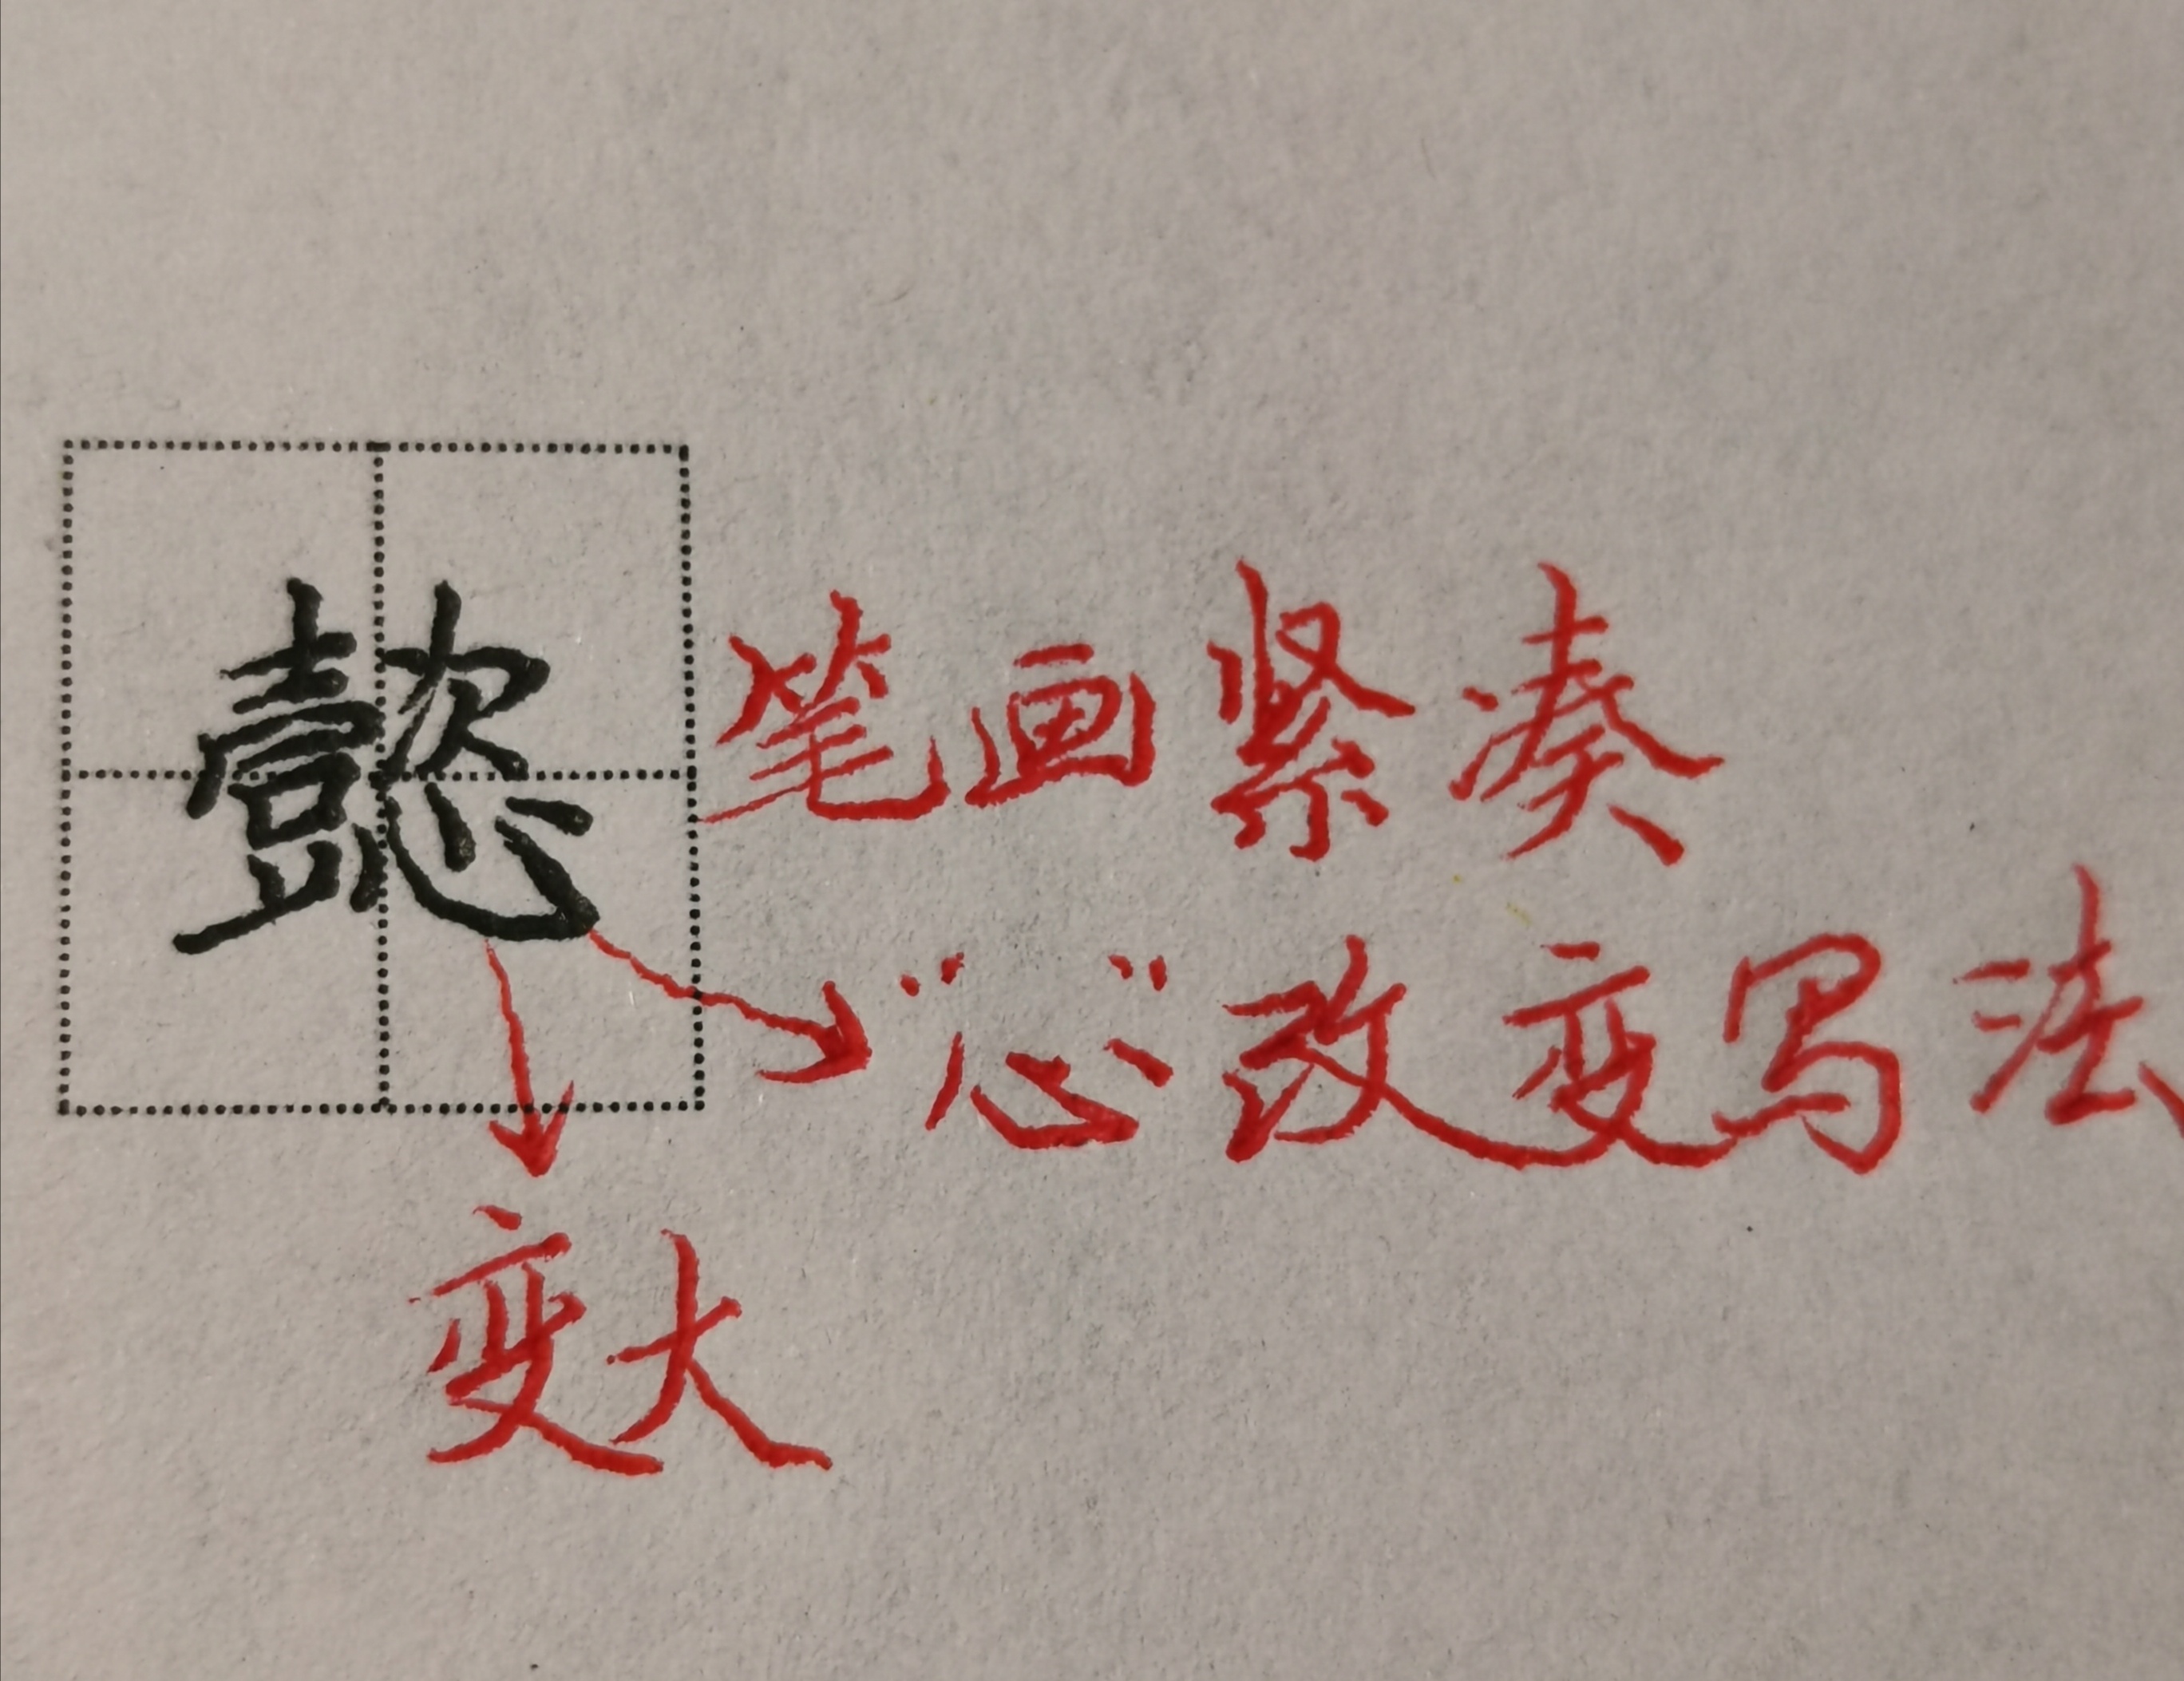 懿
笔画紧凑
"心"改变写法
变大